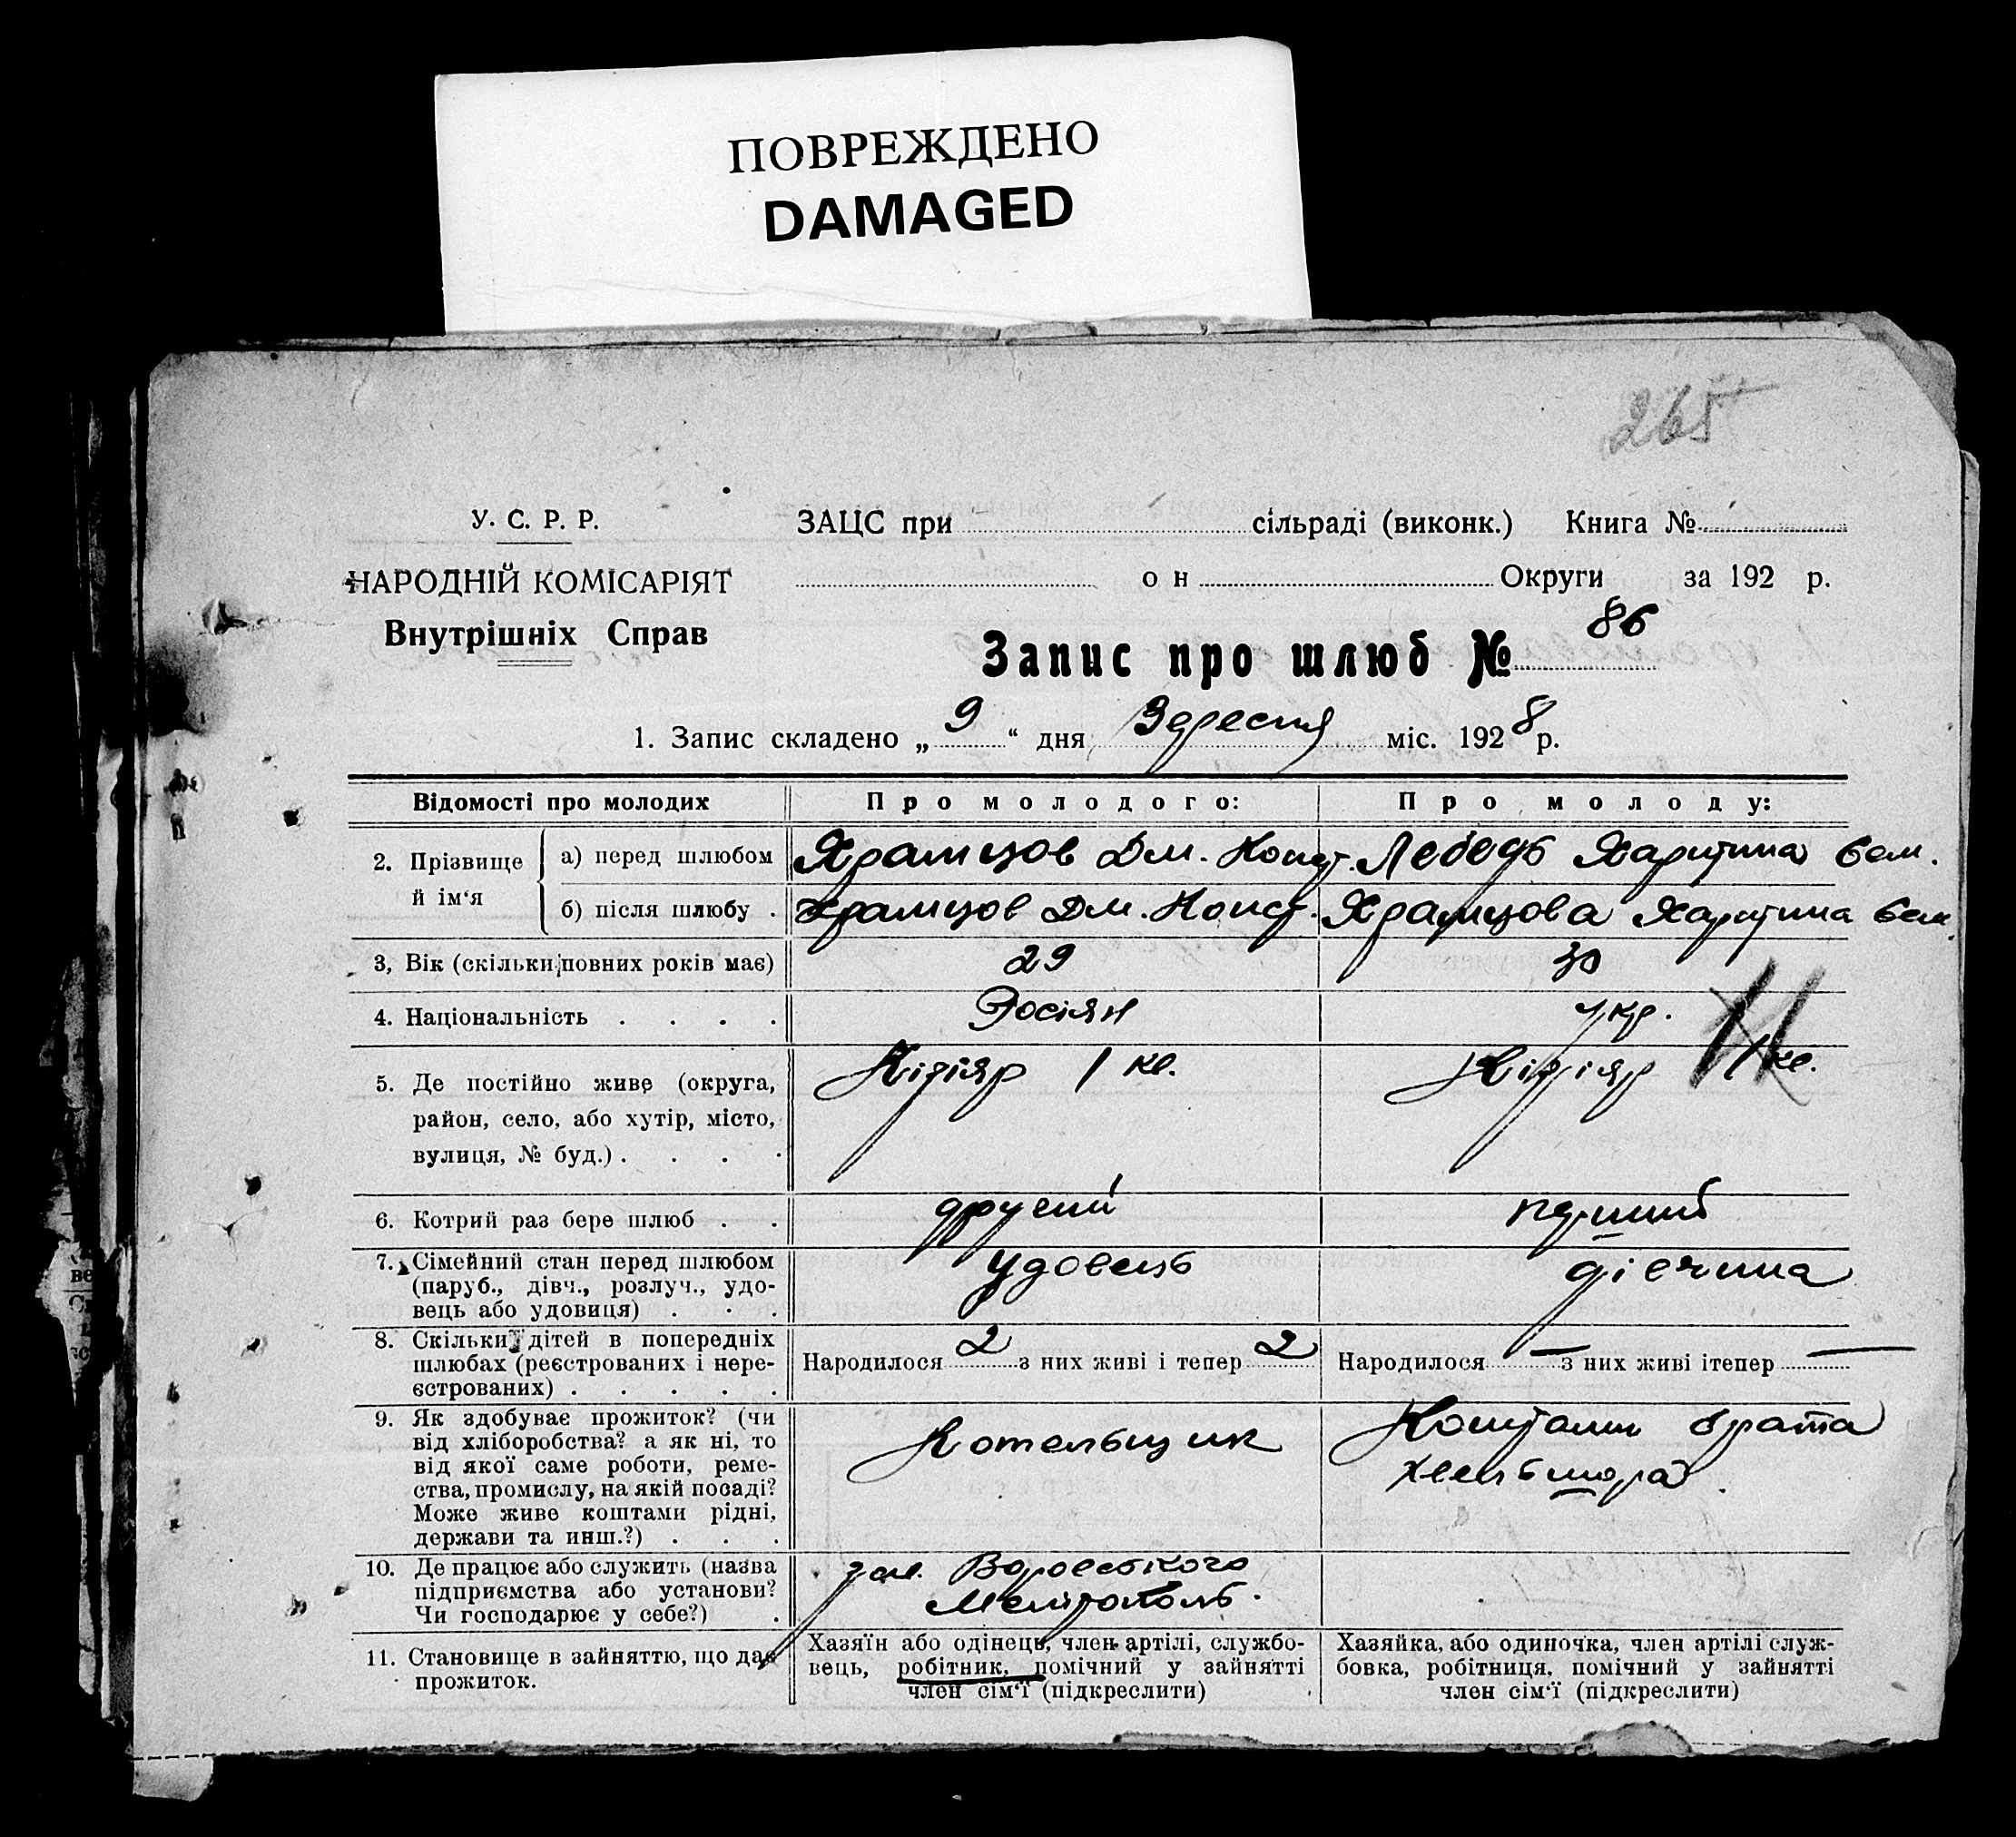 ПОВРЕЖДЕНО
DAMAGED
265
У. С. Р. Р.
НАРОДНІЙ КОМІСАРІЯТ
Внутрішніх Справ
ЗАЦС при сільраді (виконк.) Книга №
о н Округи за 192 р.
Запис про шлюб № 86
1. Запис складено „ 9 “ дня Вересня міс. 1928 р.
Відомості про молодих
Про молодого:
Про молоду:
2. Прізвище й ім‘я
а) перед шлюбом
Храмцов Дм. Конст.
Лебедь Харитина Сем.
б) після шлюбу .
Храмцов Дм. Конст.
Храмцова Харитина Сем.
3, Вік (скільки повних років має)
29
30
4. Національність . . . .
Росіян
укр.
5. Де постійно живе (округа,
район, село, або хутір, місто,
вулиця, № буд.) . . . .
Кізіяр 1 кв.
Кізіяр 1 кв.
6. Котрий раз бере шлюб . .
другий
перший
7. Сімейний стан перед шлюбом
(паруб., дівч., розлуч., удо-
вець або удовиця) . . .
Удовець
дівчина
8. Скільки дітей в попередніх
шлюбах (реєстрованих і нере-
єстрованих) . . . . .
Народилося 2 з них живі і тепер 2
Народилося — з них живі ітепер —
9. Як здобуває прожиток? (чи
від хліборобства? а як ні, то
від якої саме роботи, реме-
ства, промислу, на якій посаді?
Може живе коштами рідні,
держави та инш.?) . . .
Котельщик
Коштами брата
10. Де працює або служить (назва
підприємства або установи?
Чи господарює у себе?) .
зав. Воровського
Мелітополь.
11. Становище в зайняттю, що дає
прожиток.
Хазяїн або одінець, член артілі, службо-
вець, робітник, помічний у зайнятті
член сім‘ї (підкреслити)
Хазяйка, або одиночка, член артілі служ-
бовка, робітниця, помічний у зайнятті
член сім‘ї (підкреслити)